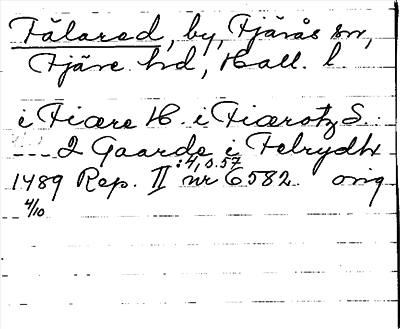 Fälared, by, Fjärås sn,
Fjäre hd, Hall. l.
i Fiære H. i Fiærotz S.
--- 2 Gaarde i Felrydh
: 4, o. 57
1489 Rep. II nr 6582 orig
4/10